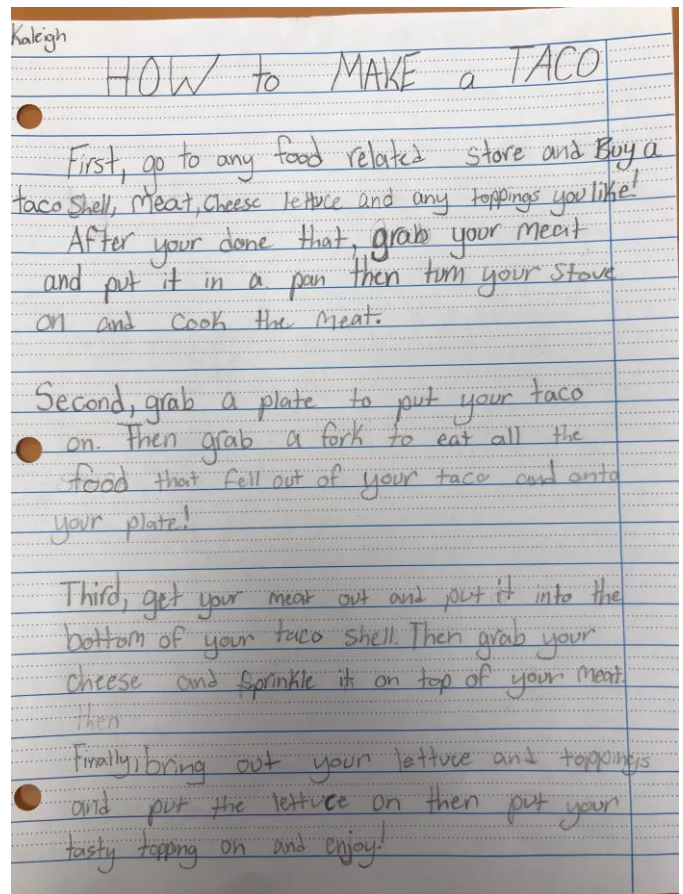 Kaleigh
HOW to MAKE a TACO
First, go to any food related store and Buy a
taco Shell, Meat, Cheese lettuce and any toppings you like!
After your done that, grab your meat
and put it in a pan then turn your stove
on and cook the meat.
Second, grab a plate to put your taco
on. Then grab a fork to eat all the
food that fell out of your taco and onto
your plate!
Third, get your meat out and put it into the
bottom of your taco shell. Then grab your
cheese and sprinkle it on top of your meat.
then
Finally, bring out your lettuce and toppings
and put the lettuce on then put your
tasty topping on and enjoy!